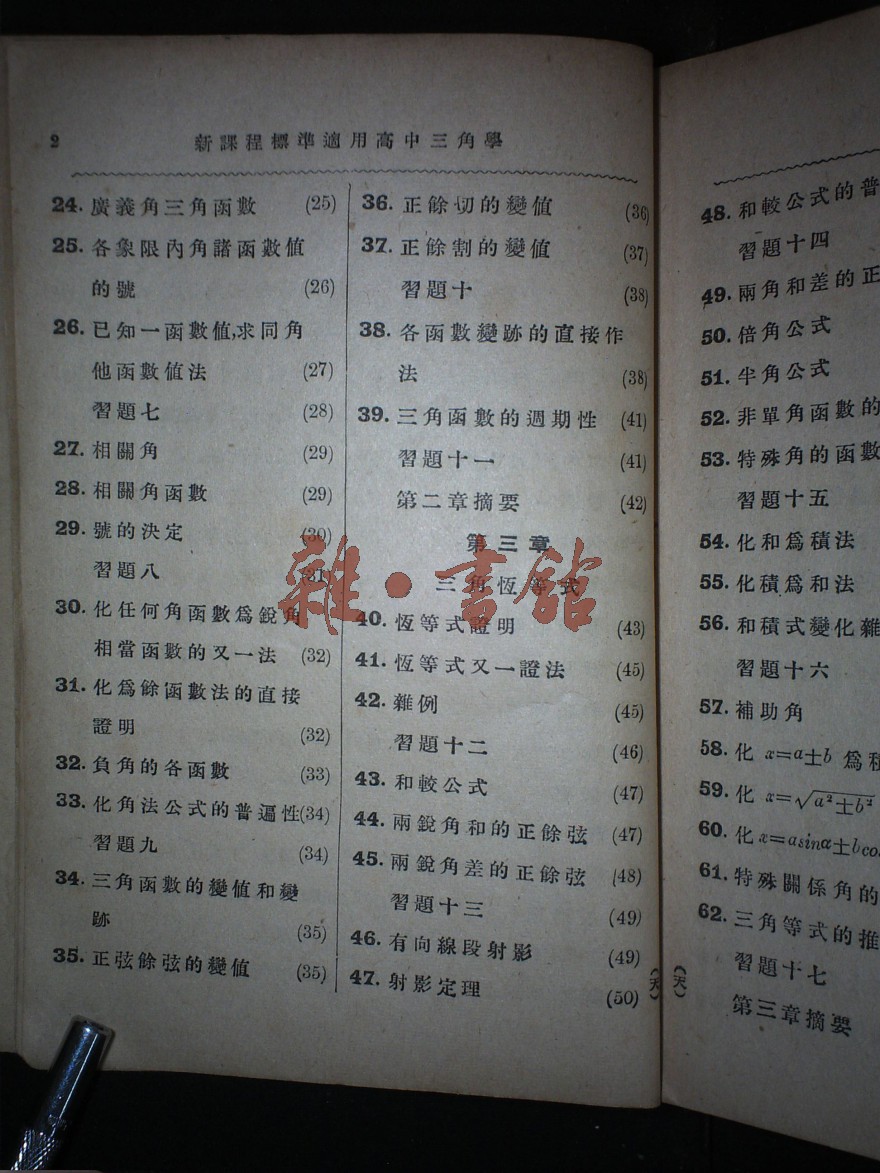 2
新課程標準適用高中三角學
24. 廣義角三角函數 (25)
25. 各象限內角諸函數值
的號 (26)
26. 已知一函數值,求同角
他函數值法 (27)
習題七 (28)
27. 相關角 (29)
28. 相關角函數 (29)
29. 號的決定 (30)
習題八 (31)
30. 化任何角函數爲銳角
相當函數的又一法 (32)
31. 化爲餘函數法的直接
證明 (32)
32. 負角的各函數 (33)
33. 化角法公式的普遍性(34)
習題九 (34)
34. 三角函數的變值和變
跡 (35)
35. 正弦餘弦的變值 (35)
36. 正餘切的變値 (36)
37. 正餘割的變値 (37)
習題十 (38)
38. 各函數變跡的直接作
法 (38)
39. 三角函數的週期性 (41)
習題十一 (41)
第二章摘要 (42)
第三章
三角恆等式
40. 恆等式證明 (43)
41. 恆等式又一證法 (45)
42. 雜例 (45)
習題十二 (46)
43. 和較公式 (47)
44. 兩銳角和的正餘弦 (47)
45. 兩銳角差的正餘弦 (48)
習題十三 (49)
46. 有向線段射影 (49)
47. 射影定理 (50)
(天)
(天)
48. 和較公式的普
習題十四
49. 兩角和差的正
50. 倍角公式
51. 半角公式
52. 非單角函數的
53. 特殊角的函數
習題十五
54. 化和爲積法
55. 化積爲和法
56. 和積式變化雜
習題十六
57. 補助角
58. 化 x=a±b 爲積
59. 化 x=√(a²±b²)
60. 化x=asinα±bco
61. 特殊關係角的
62. 三角等式的推
習題十七
第三章摘要
雜·書館